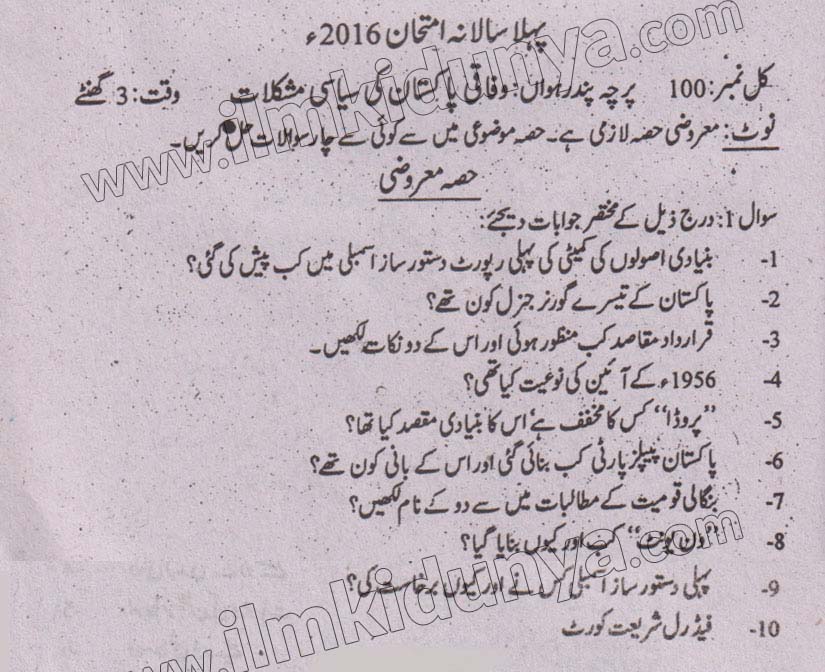 پہلا سالانہ امتحان 2016ء
کل نمبر: 100 پرچہ پندرہواں: وفاقی پاکستان کی سیاسی مشکلات وقت: 3 گھنٹے
نوٹ: معروضی حصہ لازمی ہے۔ حصہ موضوعی میں سے کوئی سے چار سوالات حل کریں۔
حصہ معروضی
سوال 1: درج ذیل کے مختصر جوابات دیجئے:
1- بنیادی اصولوں کی کمیٹی کی پہلی رپورٹ دستور ساز اسمبلی میں کب پیش کی گئی؟
2- پاکستان کے تیسرے گورنر جنرل کون تھے؟
3- قرارداد مقاصد کب منظور ہوئی اور اس کے دو نکات لکھیں۔
4- 1956ء کے آئین کی نوعیت کیا تھی؟
5- ”پروڈا“ کس کا مخفف ہے‘ اس کا بنیادی مقصد کیا تھا؟
6- پاکستان پیپلز پارٹی کب بنائی گئی اور اس کے بانی کون تھے؟
7- بنگالی قومیت کے مطالبات میں سے دو کے نام لکھیں؟
8- ”ون یونٹ“ کب اور کیوں بنایا گیا؟
9- پہلی دستور ساز اسمبلی کس نے اور کیوں برخاست کی؟
10- فیڈرل شریعت کورٹ
www.ilmkidunya.com
www.ilmkidunya.com